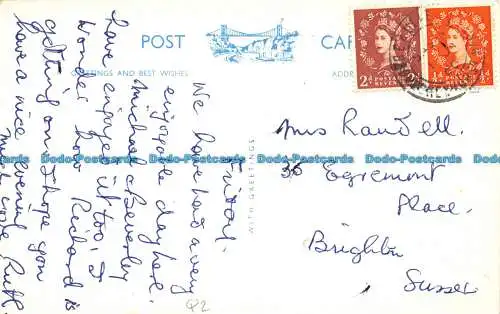 POST CARD
GREETINGS AND BEST WISHES
ADDRE
WITH GREETINGS
POSTAGE REVENUE
2d
½d
Friday.
We have had a very
enjoyable day here.
Michael & Beverley
have enjoyed it too, I
wonder how Richard is
getting on I hope you
have a nice evening
much love Ruth.
Mrs Randell.
36 Egremont
Place.
Brighton
Sussex
Q2
Dodo-Postcards Dodo-Postcards Dodo-Postcards Dodo-Postcards
Dodo-Postcards Dodo-Postcards Dodo-Postcards Dodo-Postcards